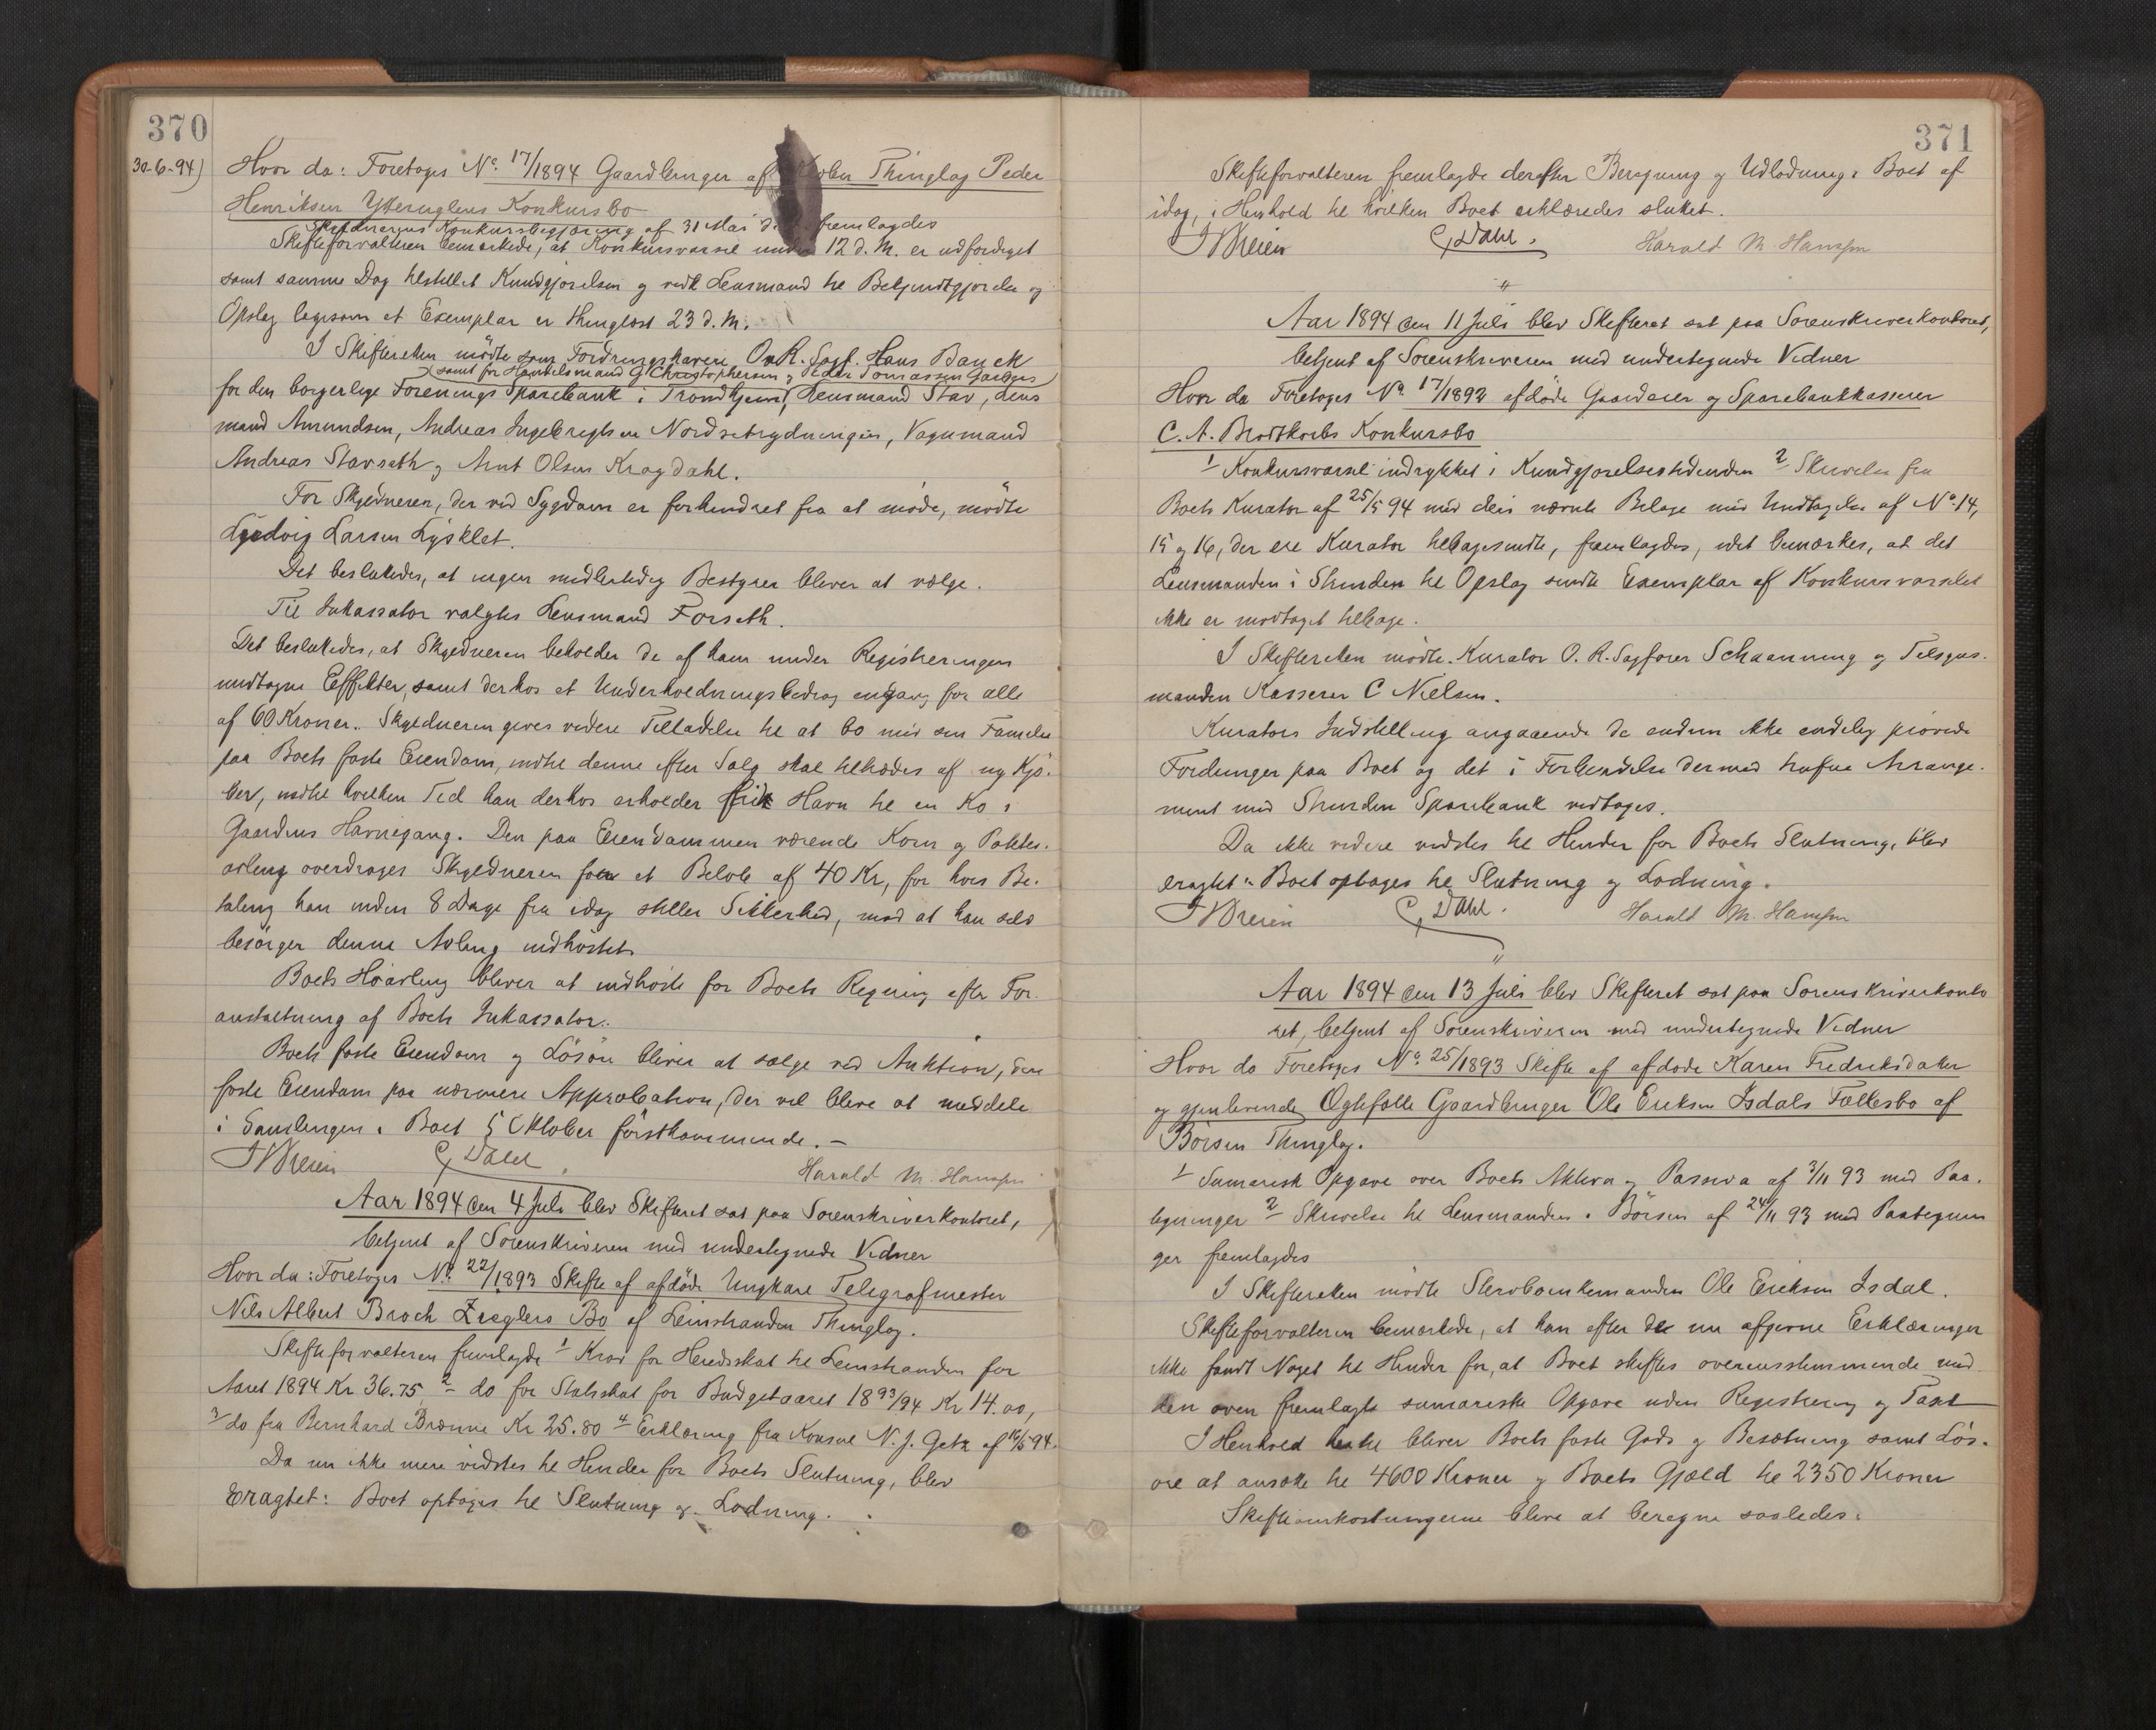 370
30-6-94)
Hvor da: Foretoges No. 17/1894 Gaardbruger af Thinglag Peder
Henriksen Ytteruglens Konkursbo
Skyldnerens Konkursbegjæring af 31 Mai fremlagdes
Skifteforvalteren bemærkede, at Konkursvarsel under 12 d. M. er udfærdiget
samt samme Dag tilstillet Kundgjørelsen og vedk Lensmand til Bekjendtgjørelse og
Opslag ligesom et Exemplar er thinglæst 23 d. M.
I Skifteretten mødte som Fordringshavere O.R. Sagf. Hans Bauck
samt for Handelsmand G Christophersen og Peder Tomassen Gaasbas
for den borgerlige Forenings Sparebank i Trondhjem, Lensmand Stav, Lens
mand Amundsen, Andreas Ingebregtsen Nordsetrydningen, Vognmand
Andreas Stavseth og Arnt Olsen Kragdahl.
For Skyldneren, der ved Sygdom er forhindret fra at møde, mødte
Ludvig Larsen Lysklet.
Det besluttedes, at ingen midlertidig Bestyrer bliver at vælge.
Til Inkassator valgtes Lensmand Forseth.
Det besluttedes, at Skyldneren beholder de af ham under Registreringen
undtagne Effekter, samt derhos et Underholdningsbidrag engang for alle
af 60 Kroner. Skyldneren gives videre Tilladelse til at bo med sin Familie
paa Boets faste Eiendom, indtil denne efter Salg skal tiltrædes af ny Kjø-
ber, indtil hvilken Tid han derhos erholder fri Havn til en Ko i
Gaardens Havnegang. Den paa Eiendommen værende Korn og Potetes-
avling overdrages Skyldneren for et Beløb af 40 Kr, for hvis Be-
taling han inden 8 Dage fra idag stiller Sikkerhed, mod at han selv
besørger denne Avling indhøstet.
Boets Høavling bliver at indhøste for Boets Regning efter For-
anstaltning af Boets Inkassator.
Boets faste Eiendom og Løsøre bliver at sælge ved Auktion, den
faste Eiendom paa nærmere Approbation, der vil blive at meddele
i Samlingen i Boet 5 Oktober førstkommende. –
C Dahl. Harald M. Hansen
Aar 1894 den 4 Juli blev Skifteret sat paa Sorenskriverkontoret,
betjent af Sorenskriveren med undertegnede Vidner
Hvor da: Foretoges No. 22/1893 Skifte af afdøde Ungkarl Telegrafmester
Nils Albert Broch Zieglers Bo af Leinstranden Thinglag.
Skifteforvalteren fremlagde 1 Krav for Herredsskat til Leinstranden for
Aaret 1894 Kr 36.75 2 do for Statsskat for Budgetaaret 1893/94 Kr 14.00,
3 do fra Bernhard Brænne Kr 25.80 4 Erklæring fra Konsul N. J. Getz af 16/5 94.
Da nu ikke mere vidstes til Hinder for Boets Slutning, blev
Eragtet: Boet optages til Slutning og Lodning.
371
Skifteforvalteren fremlagde derefter Beregning og Udlodning i Boet af
idag, i Henhold til hvilken Boet erklæredes sluttet.
C Dahl. Harald M. Hansen
"
Aar 1894 den 11 Juli blev Skifteret sat paa Sorenskriverkontoret,
betjent af Sorenskriveren med undertegnede Vidner
Hvor da Foretoges No. 17/1892 afdøde Gaardeier og Sparebankkasserer
C. A. Brodtkorbs Konkursbo
1 Konkursvarsel indrykket i Kundgjørelsestidenden 2 Skrivelse fra
Boets Kurator af 25/5 94 med deri nævnte Bilage med Undtagelse af No. 14,
15 og 16, der ere Kurator tilbagesendte, fremlagdes, idet bemærkes, at det
Lensmanden i Strinden til Opslag sendte Exemplar af Konkursvarslet
ikke er modtaget tilbage.
I Skifteretten mødte Kurator O. R. Sagfører Schaanning og Tilsyns-
manden Kasserer C Nielsen.
Kurators Indstilling angaaende de endnu ikke endelig prøvede
Fordringer paa Boet og det i Forbindelse dermed trufne Arrange-
ment med Strinden Sparebank vedtoges.
Da ikke videre vidstes til Hinder for Boets Slutning, blev
eragtet: Boet optages til Slutning og Lodning.
C Dahl. Harald M. Hansen
"
Aar 1894 den 13 Juli blev Skifteret sat paa Sorenskriverkonto
ret, betjent af Sorenskriveren med undertegnede Vidner
Hvor da Foretoges No. 25/1893 Skifte af afdøde Karen Fredriksdatter
og gjenlevende Ægtefælle Gaardbruger Ole Eriksen Isdals Fællesbo af
Børsen Thinglag.
1 Sumarisk Opgave over Boets Aktiva og Passiva af 3/11 93 med Paa-
tegninger 2 Skrivelse til Lensmanden i Børsen af 24/11 93 med Paategnin
ger fremlagdes
I Skifteretten mødte Stervboenkemanden Ole Eriksen Isdal.
Skifteforvalteren bemærkede, at han efter de nu afgivne Erklæringer
ikke fandt Noget til Hinder for, at Boet skiftes overensstemmende med
den oven fremlagte sumariske Opgave uden Registrering og Taxt
I Henhold hertil bliver Boets faste Gods og Besætning samt Løs-
øre at ansætte til 4600 Kroner og Boets Gjæld til 2350 Kroner
Skifteomkostningerne blive at beregne saaledes: